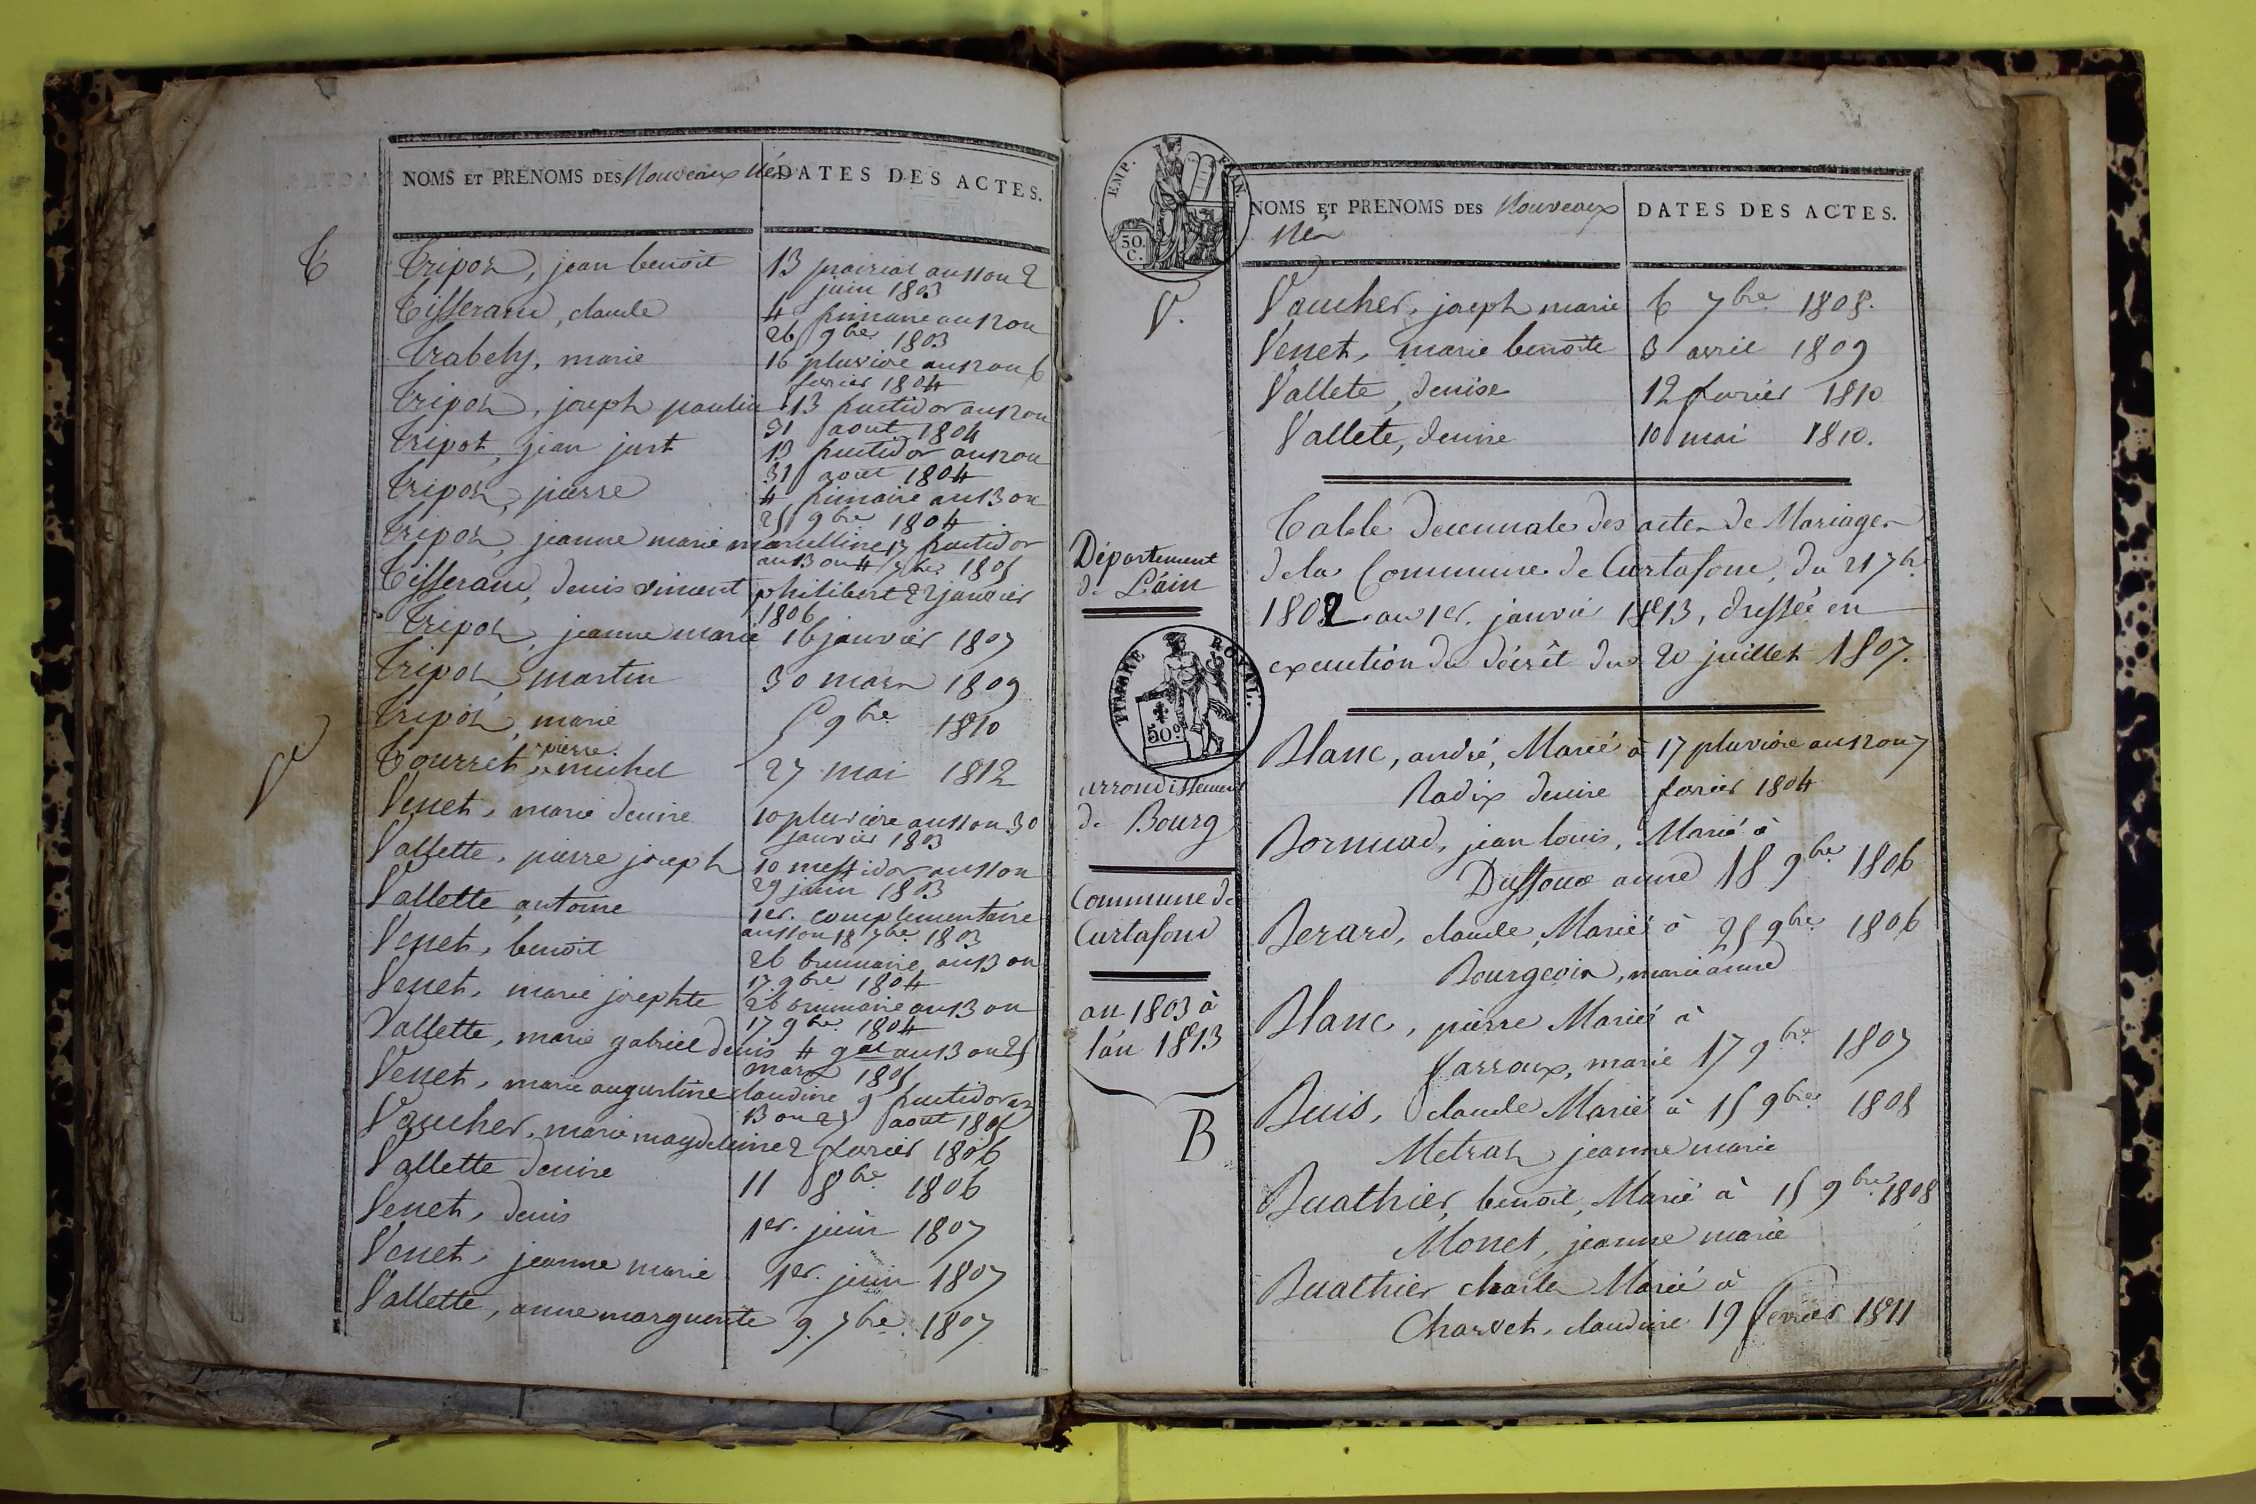 NOMS ET PRENOMS DES Nouveaux Nés DATES DES ACTES.
T
Tripoz, jean benoit 13 prairial an 11 ou 2
juin 1803
Tisserand, claude 4 frimaire an 12 ou
26 9bre 1803
Trabely, marie 16 pluviose an 12 ou 6
fevrier 1804
Tripoz, joseph paulin 13 fructidor an 12 ou
31 aout 1804
Tripot, jean just 13 fructidor an 12 ou
31 aout 1804
Tripoz, pierre 4 frimaire an 13 ou
25 9bre 1804
Tripoz, jeanne marie marcelline 17 fructidor
an 13 ou 4 7bre 1805
Tisserand, denis vincent philibert 22 janvier
1806
Tripoz, jeanne marie 16 janvier 1807
Tripoz, martin 30 mars 1809
Tripoz, marie 5 9bre 1810
pierre.
Tourret, michel 27 mai 1812
V
Venet, marie denise 10 pluviose an 11 ou 30
janvier 1803
Vallette, pierre joseph 10 messidor an 11 ou
29 juin 1803
Vallette antoine 1er. complementaire
an 11 ou 18 7bre 1803
Venet, benoit 26 brumaire an 13 ou
17 9bre 1804
Venet, marie josephte 26 brumaire an 13 ou
17 9bre 1804
Vallette, marie gabriel denis 4 gal an 13 ou 25
mars 1805
Venet, marie augustine claudine 9 fructidor an
13 ou 25 aout 1805
Vaucher, marie magdeleine 2 fevrier 1806
Vallette denise 11 8bre 1806
Venet, denis 1er. juin 1807
Venet, jeanne marie 1er. juin 1807
Vallette, anne marguerite 9. 7bre. 1807
EMP. FRAN.
50. C.
NOMS ET PRENOMS DES Nouveaux DATES DES ACTES.
Nés
V.
Vaucher, joseph marie 6 7bre 1808.
Venet, marie benoite 3 avril 1809
Vallete, denise 12 fevrier 1810
Vallete, denise 10 mai 1810.
Table decennale des actes de Mariages
de la Commune de Curtafond, du 21 7bre
1802 au 1er. janvier 1813, dressée en
execution du décrêt du 20 juillet 1807.
Département
de L'ain
TIMBRE ROYAL.
50c
arrondissement
de Bourg
Commune de
Curtafond
an 1803 à
l'an 1813
B
Blanc, andré, Marié à 17 pluviose an 12 ou 7
Radix denise fevrier 1804
Bornuad, jean louis, Marié à
Duffoux anne 18 9bre 1806
Berard, claude, Marié à 25 9bre 1806
Bourgeois, marie anne
Blanc, pierre Marié à
Jarroux, marie 17 9bre 1807
Buis, claude Marié à 15 9bre 1808
Metraz jeanne marie
Buathier, benoit, Marié à 15 9bre 1808
Monet, jeanne marie
Buathier charles Marié à
Charvet, claudine 19 fevrier 1811